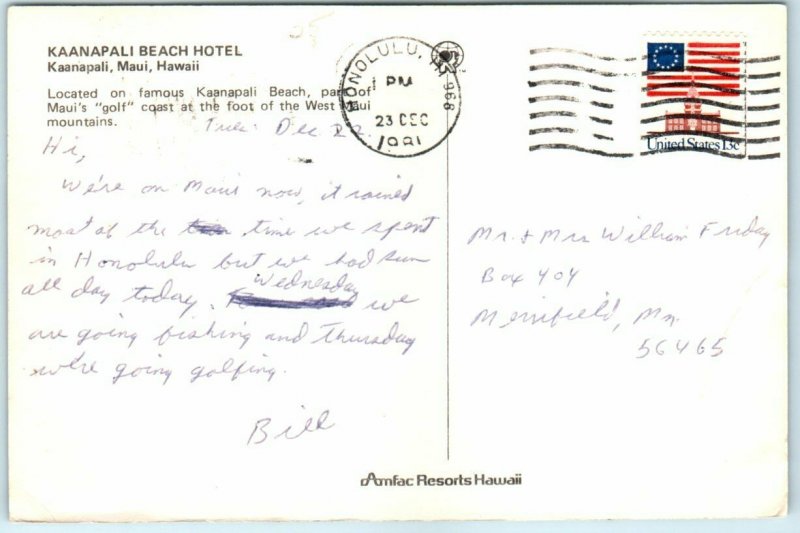 KAANAPALI BEACH HOTEL
Kaanapali, Maui, Hawaii
Located on famous Kaanapali Beach, part of
Maui's "golf" coast at the foot of the West Maui
mountains.
HONOLULU, HI 968
PM
23 DEC
1981
United States 13c
Tues. Dec 22.
Hi,
We're on Maui now, it rained
most of the time we spent
in Honolulu but we had sun
all day today. Wednesday we
are going fishing and Thursday
we're going golfing.
Bill
Mr. & Mrs William Friday
Box 404
Merrifield, Mn.
56465
Amfac Resorts Hawaii